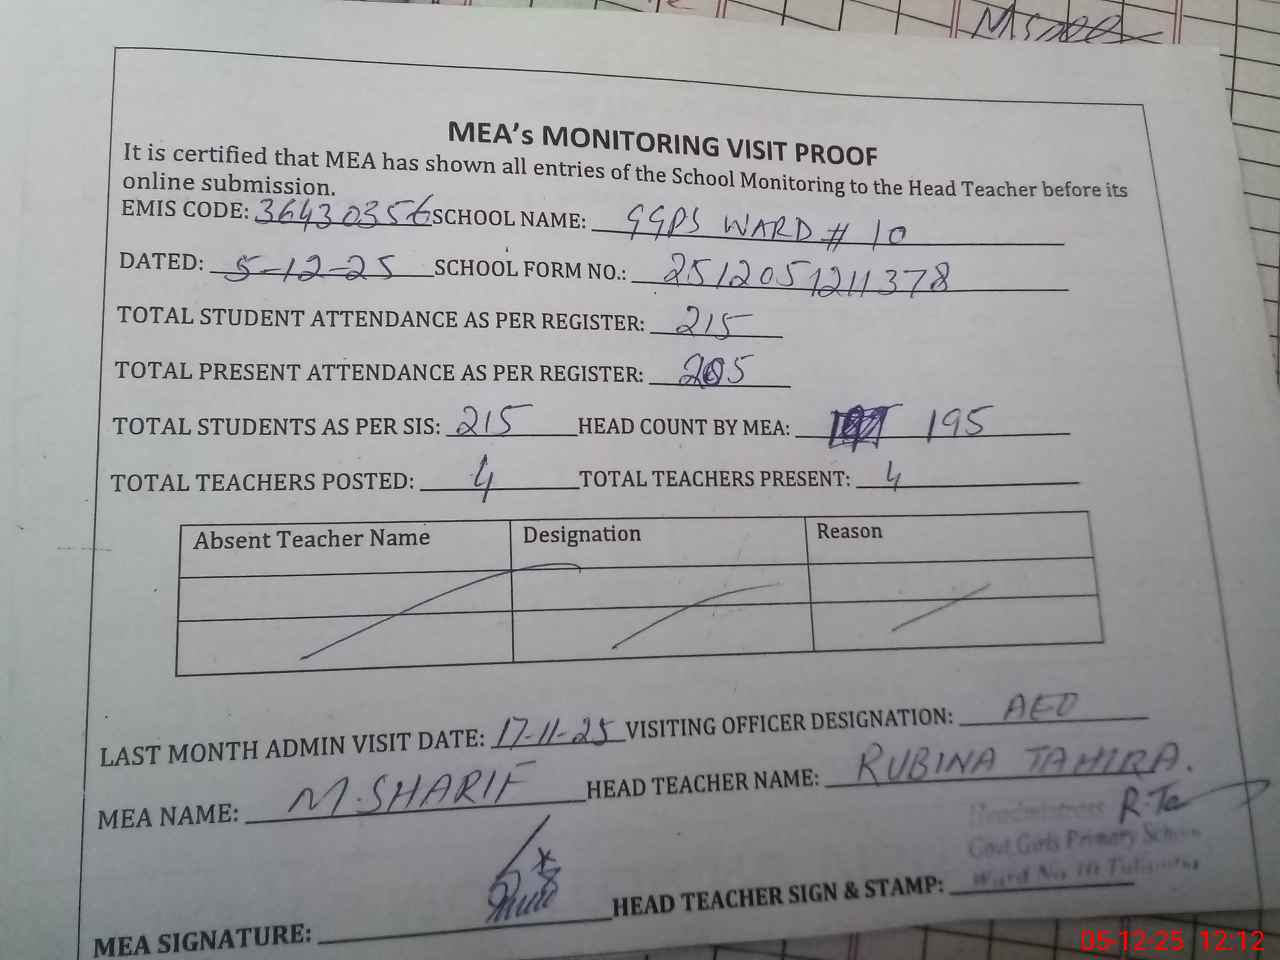 MEA's MONITORING VISIT PROOF
It is certified that MEA has shown all entries of the School Monitoring to the Head Teacher before its
online submission.
EMIS CODE: 36430356 SCHOOL NAME: GGPS WARD # 10
DATED: 5-12-25 SCHOOL FORM NO.: 2512051211378
TOTAL STUDENT ATTENDANCE AS PER REGISTER: 215
TOTAL PRESENT ATTENDANCE AS PER REGISTER: 205
TOTAL STUDENTS AS PER SIS: 215 HEAD COUNT BY MEA: 195
TOTAL TEACHERS POSTED: 4 TOTAL TEACHERS PRESENT: 4
Absent Teacher Name Designation Reason
LAST MONTH ADMIN VISIT DATE: 17-11-25 VISITING OFFICER DESIGNATION: AEO
MEA NAME: M. SHARIF HEAD TEACHER NAME: RUBINA TAHIRA.
Headmistress
Govt. Girls Primary School
Ward No. 10
MEA SIGNATURE: HEAD TEACHER SIGN & STAMP:
05-12-25 12:12